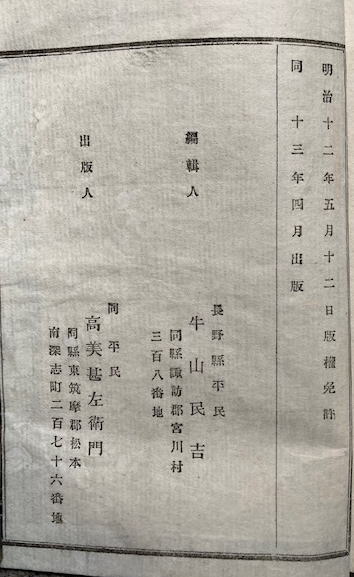 明治十二年五月十二日版權免許
同 十三年四月出版
編輯人
長野縣平民
牛山民吉
同縣諏訪郡宮川村
三百八番地
出版人
同平民
高美甚左衛門
同縣東筑摩郡松本
南深志町二百七十六番地